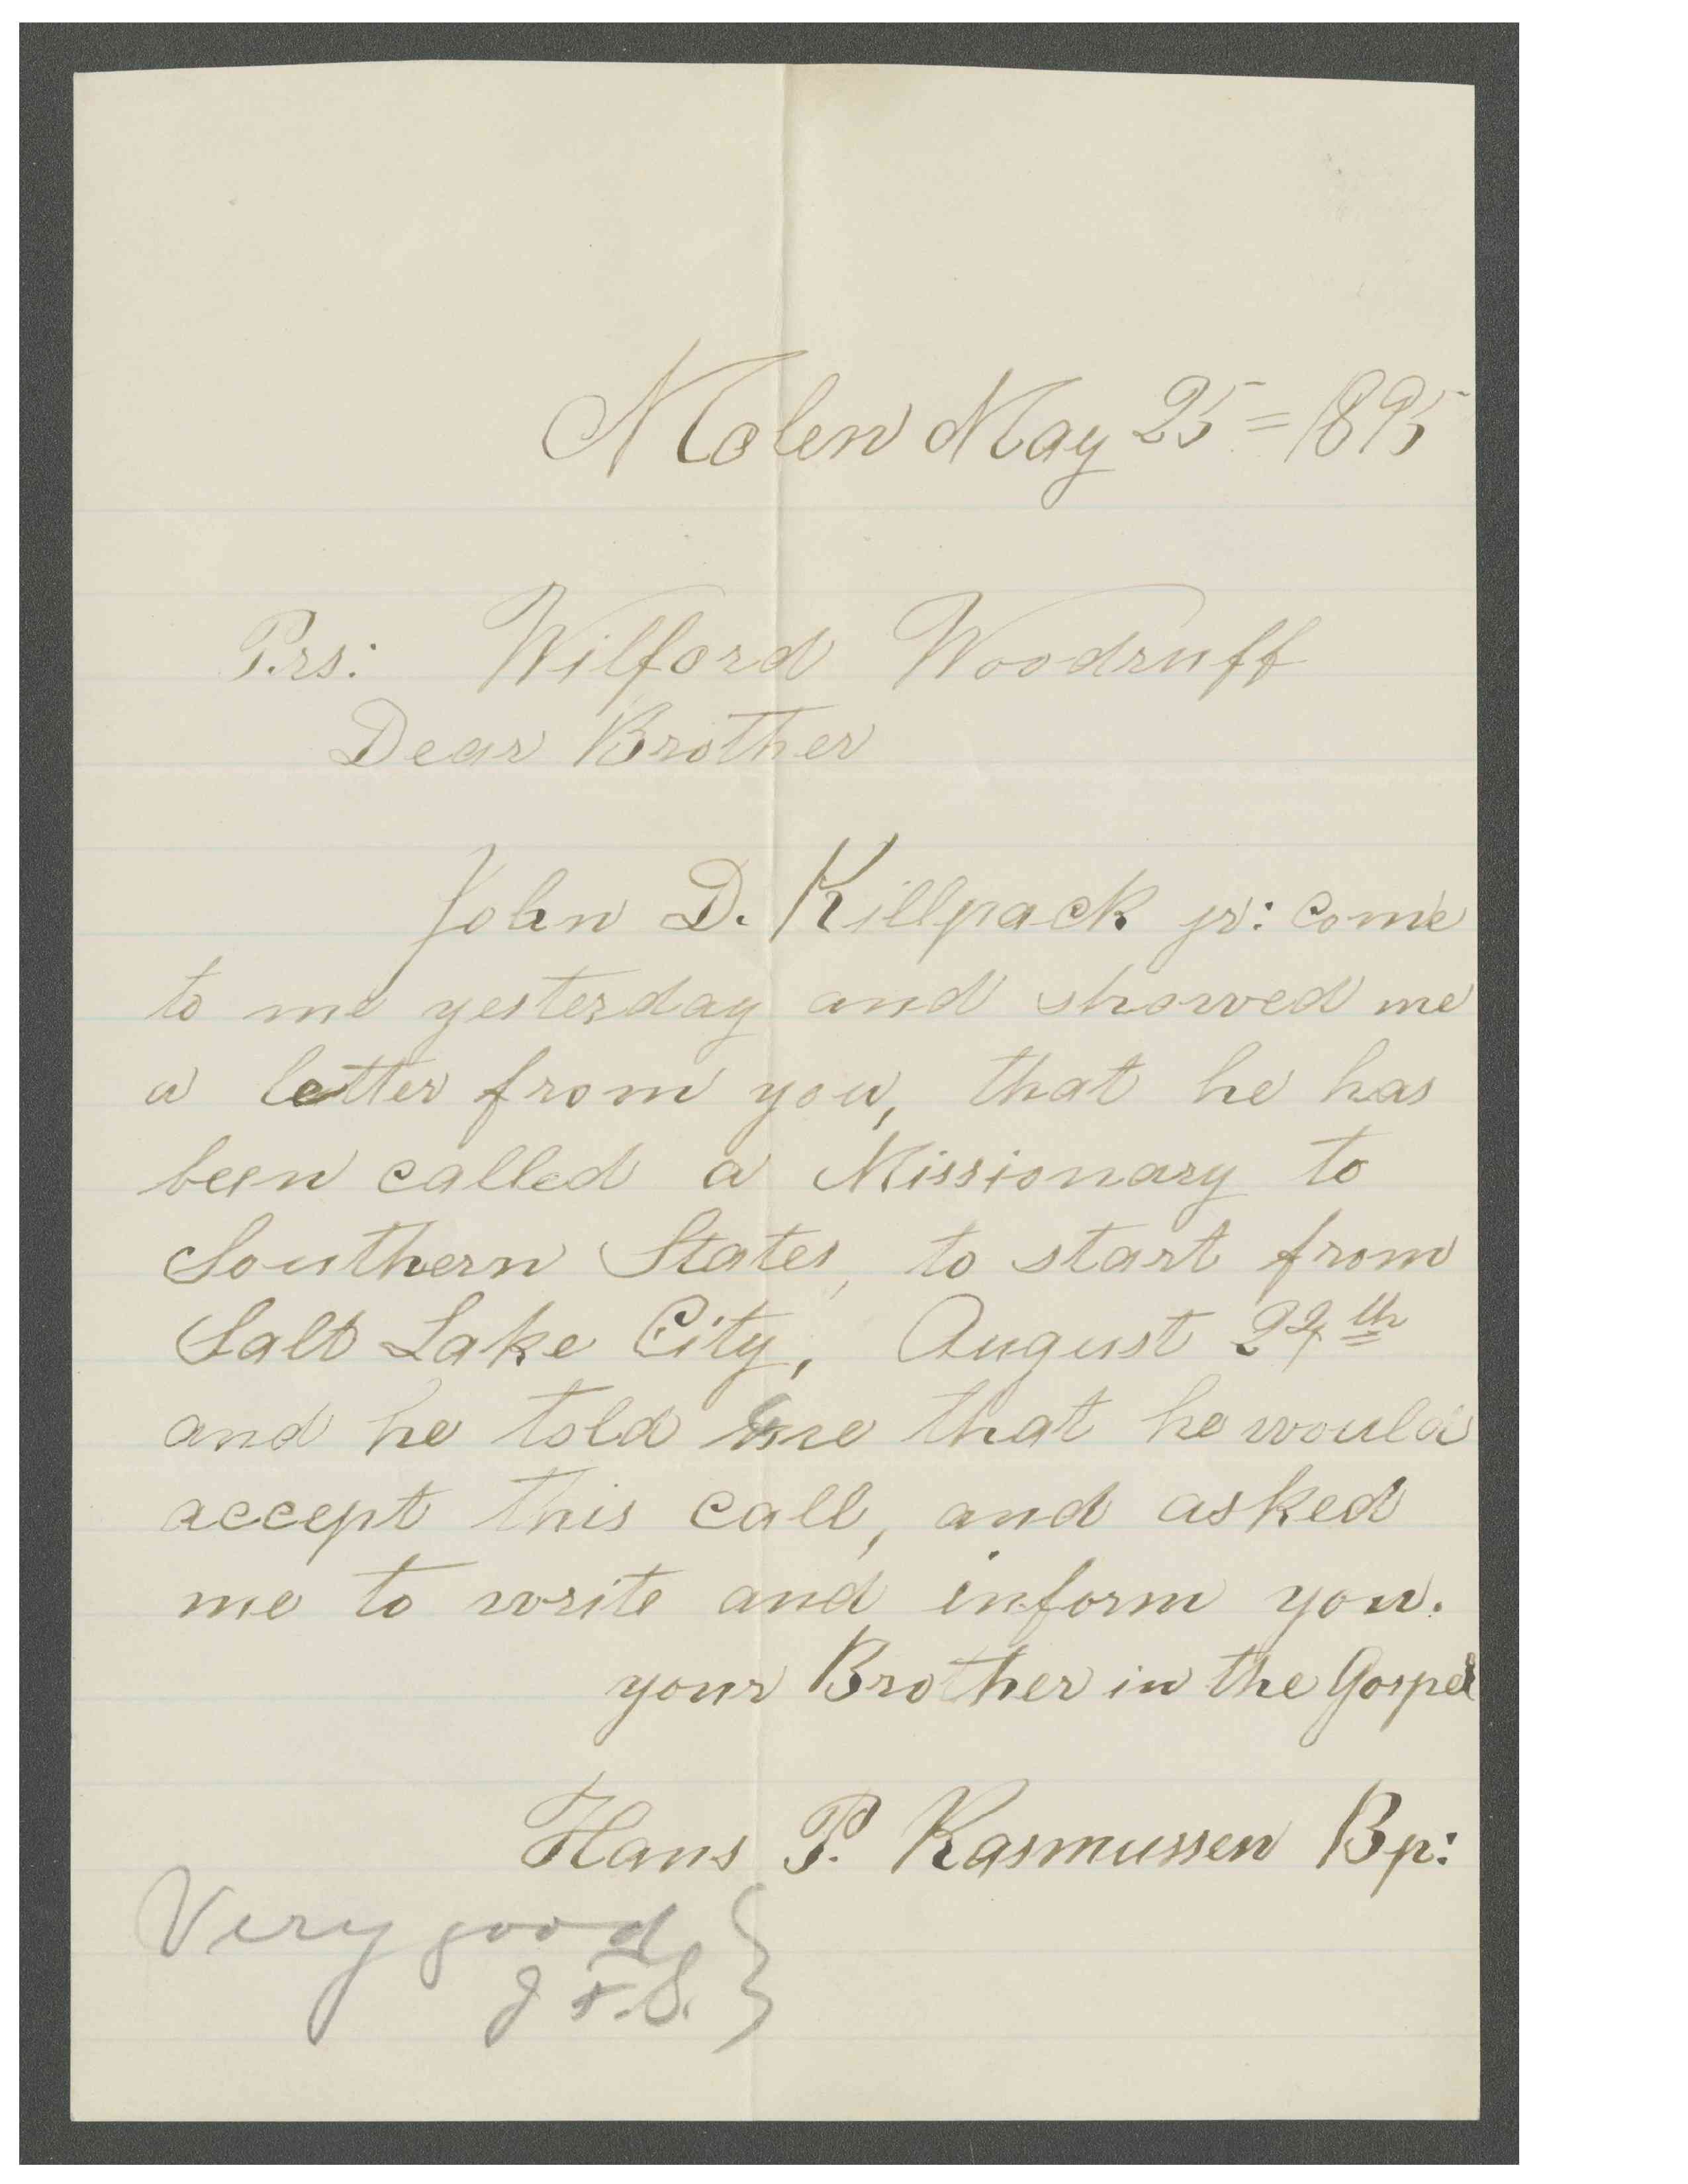 Molen May 25 = 1895
Prs: Wilford Woodruff
Dear Brother
John D. Killpack jr: come
to me yesterday and showed me
a letter from you, that he has
been called a Missionary to
Southern States, to start from
Salt Lake City, August 24th
and he told me that he would
accept this call, and asked
me to write and inform you.
your Brother in the Gospel
Hans P. Rasmussen Bp:
Very good }
J. F. S.